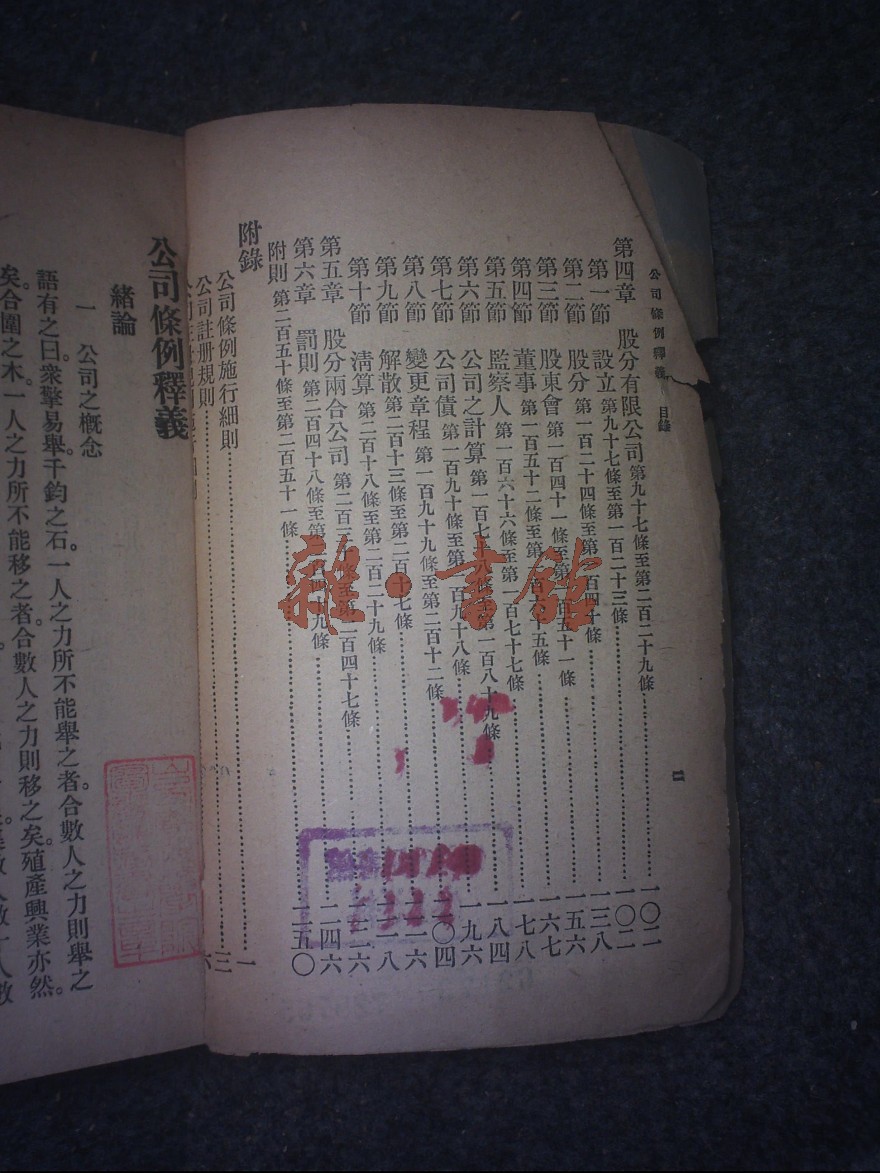 公司條例釋義 目錄
二
第四章 股分有限公司 第九十七條至第二百二十九條 一〇二
第一節 設立 第九十七條至第一百二十三條 一〇二
第二節 股分 第一百二十四條至第一百四十條 一三八
第三節 股東會 第一百四十一條至第一百五十一條 一五六
第四節 董事 第一百五十二條至第一百六十五條 一六七
第五節 監察人 第一百六十六條至第一百七十七條 一七八
第六節 公司之計算 第一百七十八條至第一百八十九條 一八四
第七節 公司債 第一百九十條至第一百九十八條 一九六
第八節 變更章程 第一百九十九條至第二百十二條 二〇四
第九節 解散 第二百十三條至第二百十七條 二一六
第十節 淸算 第二百十八條至第二百二十九條 二一八
第五章 股分兩合公司 第二百三十條至第二百四十七條
第六章 罰則 第二百四十八條至第二百四十九條 二四六
附則 第二百五十條至第二百五十一條 二五〇
附錄
公司條例施行細則 一
公司註册規則 三
公司條例釋義
緒論
一 公司之概念
語有之曰。衆擎易舉。千鈞之石。一人之力所不能舉之者。合數人之力則舉之
矣。合圍之木。一人之力所不能移之者。合數人之力則移之矣。殖產興業亦然。
雜·書館